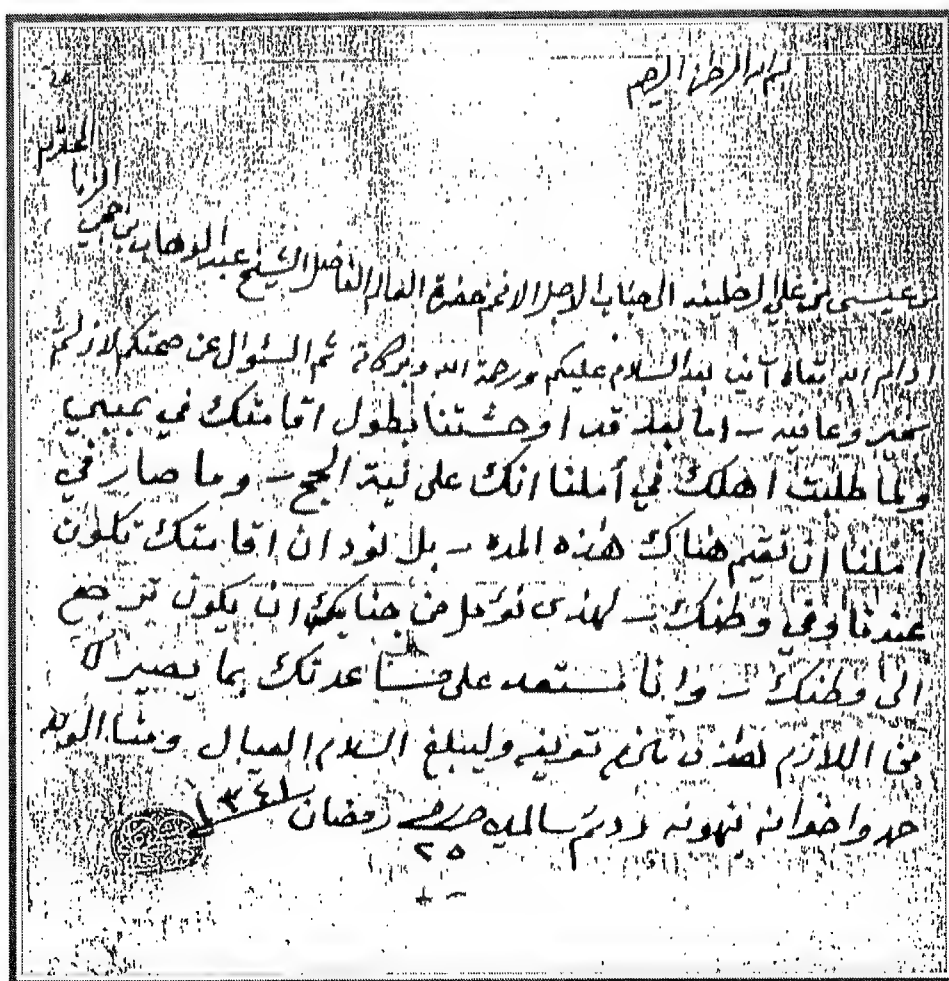 بسم الله الرحمن الرحيم
المحترم
الزياني
من عيسى بن علي الخليفه الى جناب الاجل الافخم حضرة العالم الفاضل الشيخ عبد الوهاب بن حجي
ادام الله تعالى آمين بعد السلام عليكم ورحمة الله وبركاته ثم السئوال عن صحتكم لازلتم
بخير وعافيه – اما بعد قد اوحشتنا بطول اقامتك في بمبي
ولما طلبت اهلك في أملنا انك على نية الحج – وما صار في
املنا ان تقيم هناك هذه المده – بل نود ان اقامتك تكون
عندنا وفي وطنك – لهذى نؤمل من جنابك ان يكون ترجع
الى وطنك – وانا مستعد على مساعدتك بما يصير لك
من اللازم هذى ما لزم تعريفه وليبلغ السلام العيال ومنا الولد
حمد واخوانه ينهونه ودمتم سالمين حرر في رمضان ١٣٤١
٢٥